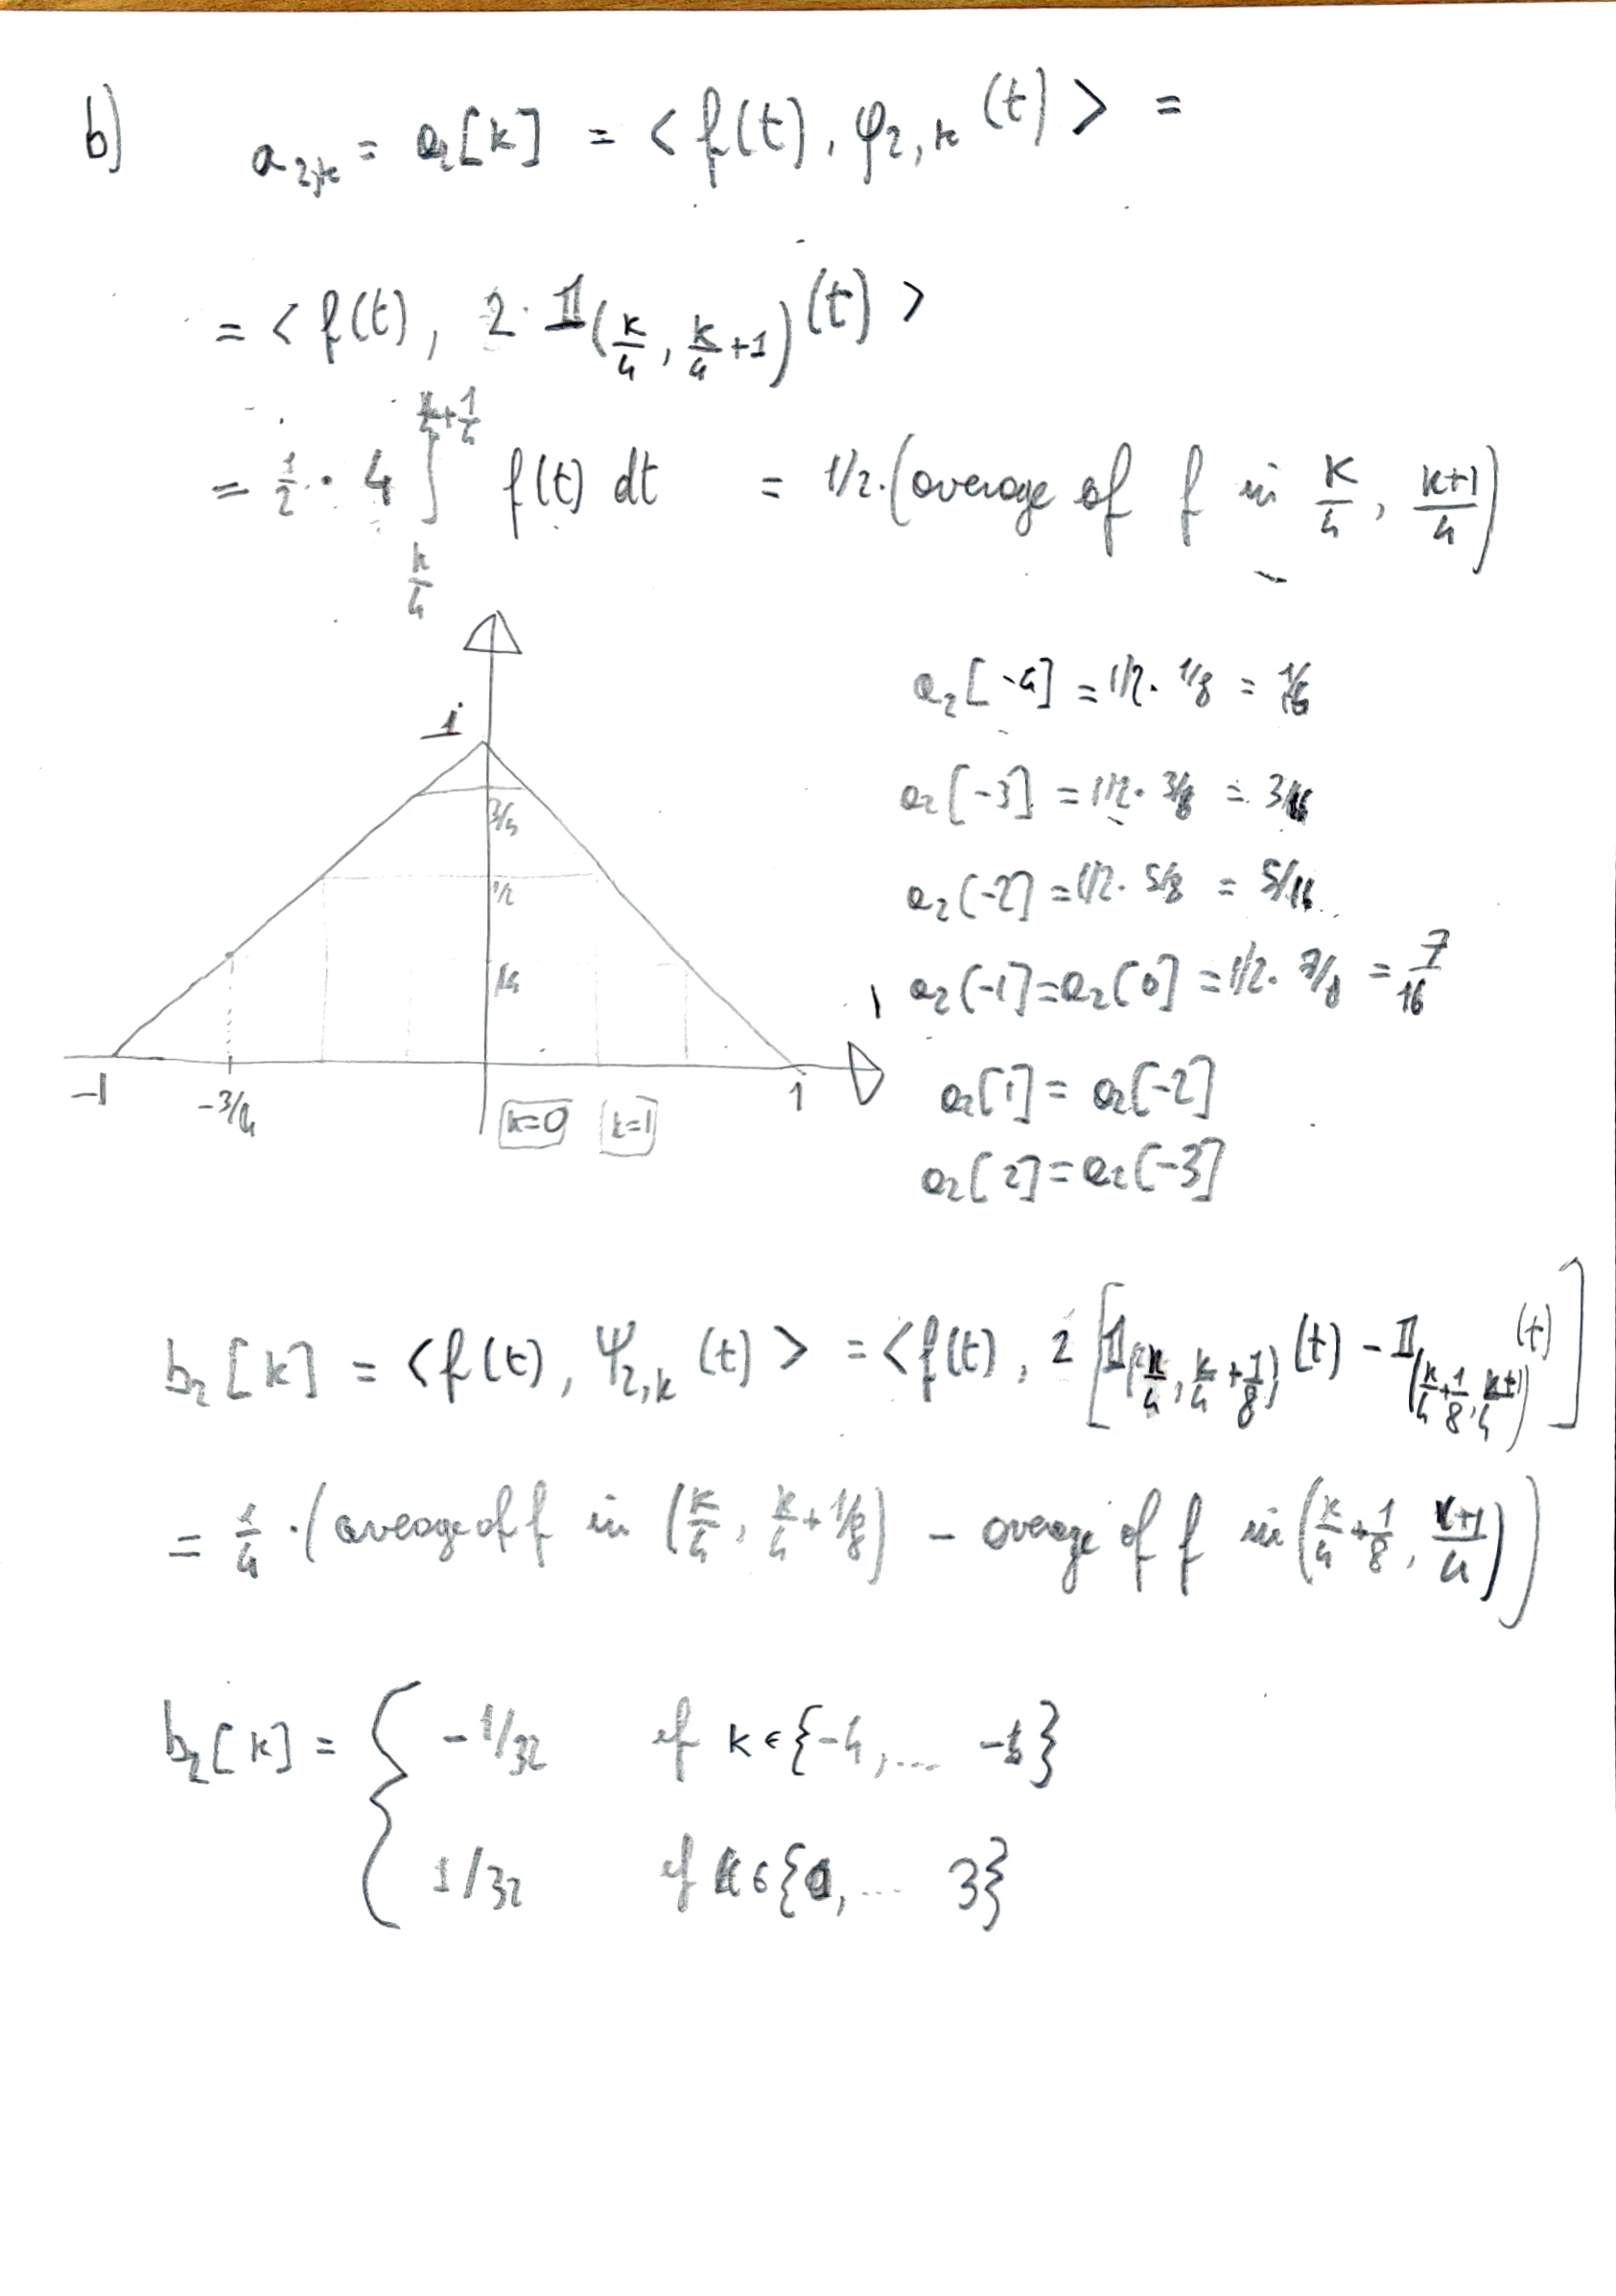 b) a₂,ₖ = a₂[k] = < f(t), φ₂,ₖ(t) > =
= < f(t), 2 · 𝟙_(k/4, k/4+1)(t) >
= 1/2 · 4 ∫_{k/4}^{k/4+1/4} f(t) dt = 1/2·(average of f in k/4, k+1/4)
1
3/4
1/2
1/4
-1 -3/4 1
k=0 k=1
a₂[-4] = 1/2 · 1/8 = 1/16
a₂[-3] = 1/2 · 3/8 = 3/16
a₂[-2] = 1/2 · 5/8 = 5/16
a₂[-1] = a₂[0] = 1/2 · 7/8 = 7/16
a₂[1] = a₂[-2]
a₂[2] = a₂[-3]
b₂[k] = < f(t), ψ₂,ₖ(t) > = < f(t), 2 [𝟙_(k/4, k/4+1/8)(t) - 𝟙_(k/4+1/8, k+1/4)(t)]
= 1/4 · (average of f in (k/4, k/4+1/8) - average of f in (k/4+1/8, k+1/4))
b₂[k] = { -1/32 if k ∈ {-4, ... -1}
1/32 if k ∈ {0, ... 3}